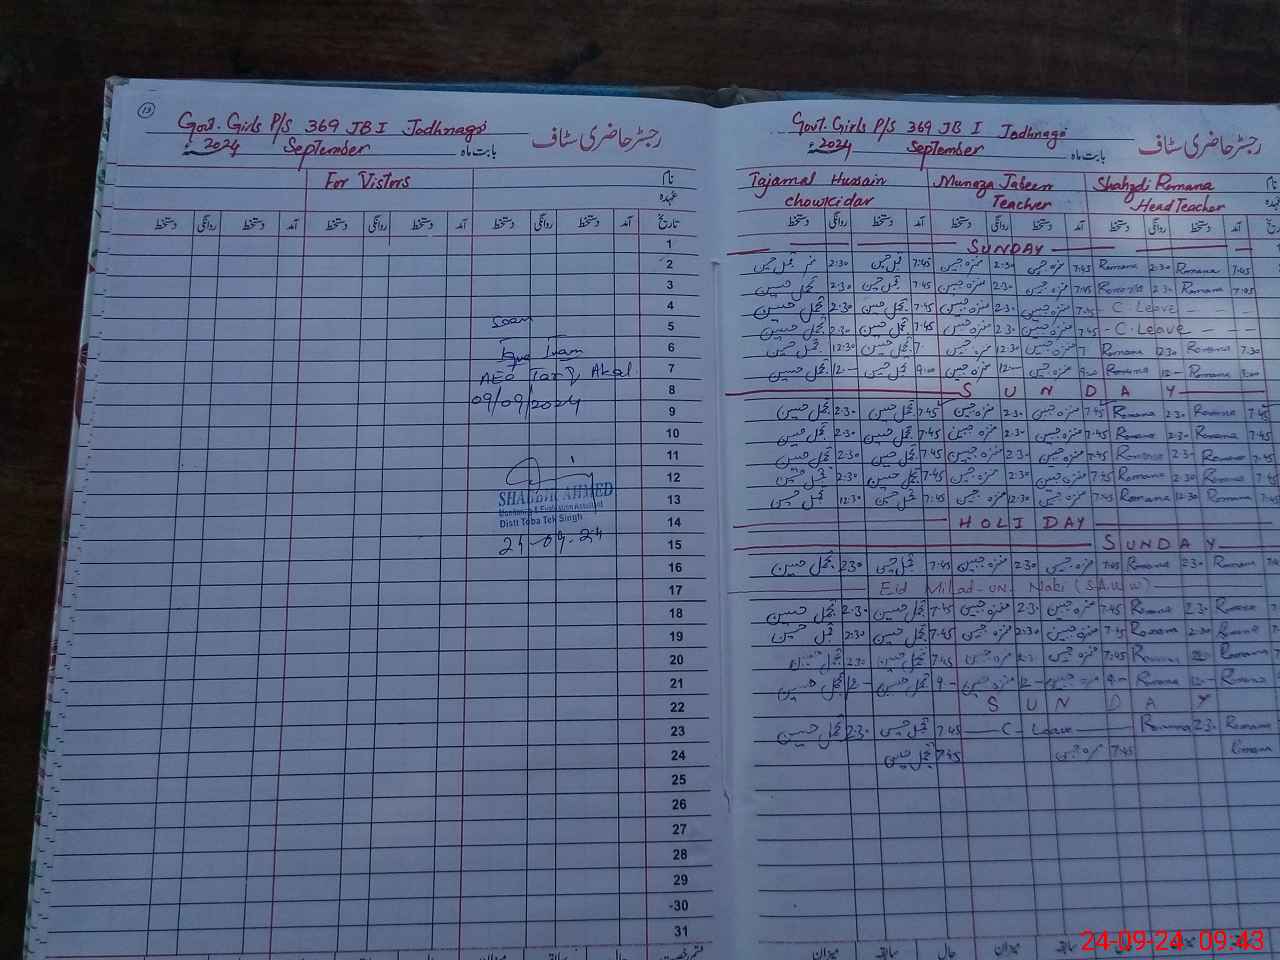 13
Govt. Girls P/S 369 JB I Jodhnagri
رجسٹر حاضری سٹاف
2024 September بابت ماہ
For Vistors
نام
عہدہ
تاریخ آمد دستخط روانگی دستخط آمد دستخط روانگی دستخط آمد دستخط روانگی دستخط
1
2
3
4
5
6
7
AEO
8
09/09/2024
9
10
11
12
SHABBIR AHMED
Monitoring & Evaluation Assistant
13
Distt Toba Tek Singh
14
21-09-24
15
16
17
18
19
20
21
22
23
24
25
26
27
28
29
30
31
Govt. Girls P/S 369 JB I Jodhnagri
رجسٹر حاضری سٹاف
2024 September بابت ماہ
Tajamal Hussain Muneza Jabeen Shahzdi Romana
chowkidar Teacher Head Teacher
آمد دستخط روانگی دستخط آمد دستخط روانگی دستخط آمد دستخط روانگی دستخط
SUNDAY
تجمل حسین 2:30 تجمل حسین 7:45 منزہ جبیں 2:30 منزہ جبیں 7:45 Romana 2:30 Romana 7:45
تجمل حسین 2:30 تجمل حسین 7:45 منزہ جبیں 2:30 منزہ جبیں 7:45 Romana 2:30 Romana 7:45
تجمل حسین 2:30 تجمل حسین 7:45 منزہ جبیں 2:30 منزہ جبیں 7:45 - C. Leave - -
تجمل حسین 2:30 تجمل حسین 7:45 منزہ جبیں 2:30 منزہ جبیں 7:45 - C. Leave - -
تجمل حسین 12:30 تجمل حسین 7 منزہ جبیں 12:30 منزہ جبیں 7 Romana 12:30 Romana 7:30
تجمل حسین 12- تجمل حسین 9:00 منزہ جبیں 12- منزہ جبیں 9:00 Romana 12- Romana 9:00
SUNDAY
تجمل حسین 2:30 تجمل حسین 7:45 منزہ جبیں 2:30 منزہ جبیں 7:45 Romana 2:30 Romana 7:45
تجمل حسین 2:30 تجمل حسین 7:45 منزہ جبیں 2:30 منزہ جبیں 7:45 Romana 2:30 Romana 7:45
تجمل حسین 2:30 تجمل حسین 7:45 منزہ جبیں 2:30 منزہ جبیں 7:45 Romana 2:30 Romana 7:45
تجمل حسین 2:30 تجمل حسین 7:45 منزہ جبیں 2:30 منزہ جبیں 7:45 Romana 2:30 Romana 7:45
تجمل حسین 12:30 تجمل حسین 7:45 منزہ جبیں 12:30 منزہ جبیں 7:45 Romana 12:30 Romana 7:45
HOLIDAY
SUNDAY
تجمل حسین 2:30 تجمل حسین 7:45 منزہ جبیں 2:30 منزہ جبیں 7:45 Romana 2:30 Romana
Eid Milad-un-Nabi (S.A.W.W)
تجمل حسین 2:30 تجمل حسین 7:45 منزہ جبیں 2:30 منزہ جبیں 7:45 Romana 2:30 Romana
تجمل حسین 2:30 تجمل حسین 7:45 منزہ جبیں 2:30 منزہ جبیں 7:45 Romana 2:30 Romana
تجمل حسین 2:30 تجمل حسین 7:45 منزہ جبیں 2:30 منزہ جبیں 7:45 Romana Romana
تجمل حسین 12- تجمل حسین 9- منزہ جبیں 12- منزہ جبیں 9:0 Romana 12- Romana
SUNDAY
تجمل حسین 2:30 تجمل حسین 7:45 C Leave Romana 2:30 Romana
تجمل حسین 7:45 منزہ جبیں 7:45 Romana
24-09-24 09:43